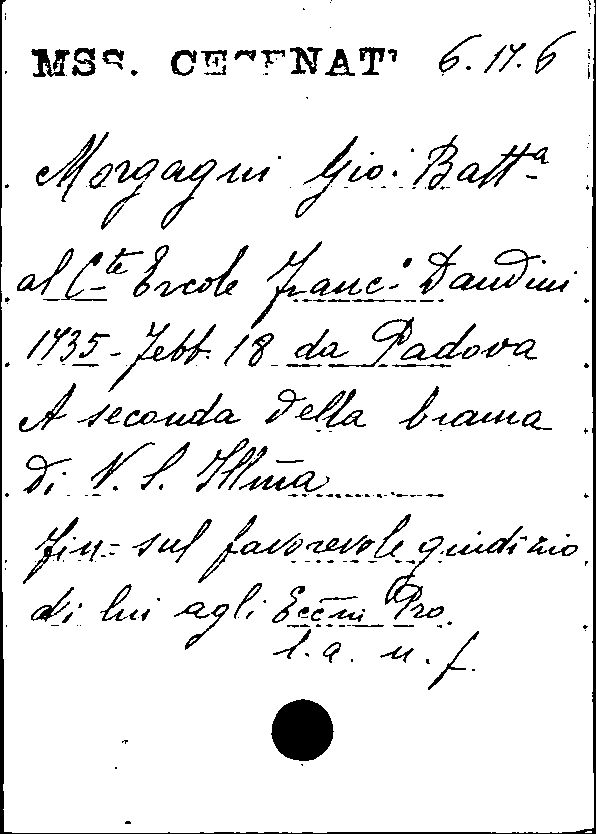 MSS. CESENATI 6.17.6
Morgagni Gio. Batt.a
al C.te Ercole Franc.o Dandini
1735 - Febb. 18 da Padova
A seconda della brama
di V. S. Ill̃ma
fin = sul favorevole giudizio
di lui agli Ecc̃mi Pro.
l. a. n. f.